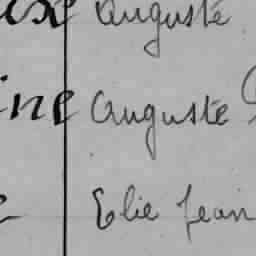 Auguste
ine Auguste
Elie Jean